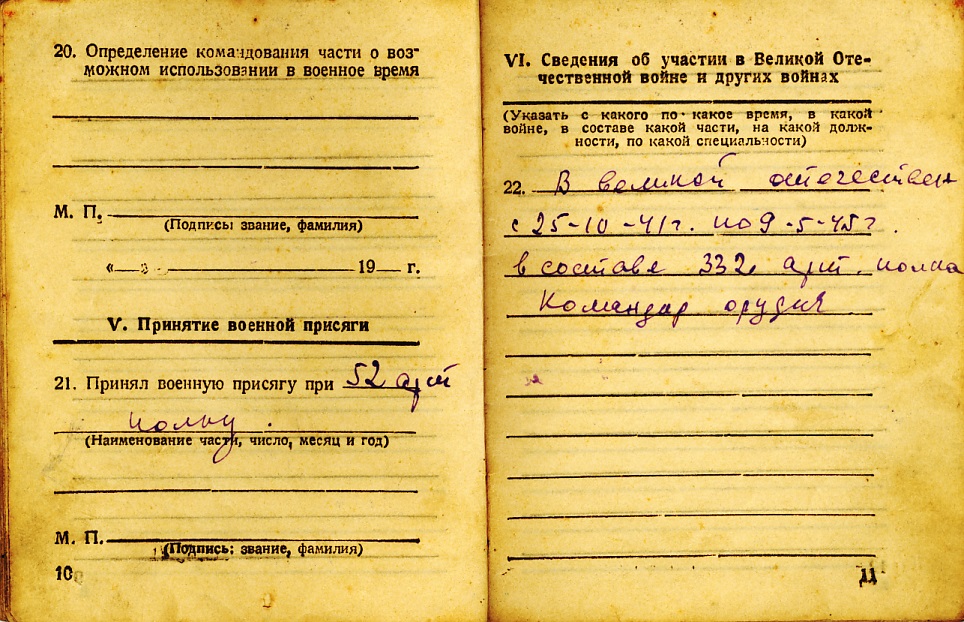 20. Определение командования части о воз-
можном использовании в военное время
М. П.
(Подпись: звание, фамилия)
« » 19 г.
V. Принятие военной присяги
21. Принял военную присягу при 52 арт
полку.
(Наименование части, число, месяц и год)
М. П.
(Подпись: звание, фамилия)
10
VI. Сведения об участии в Великой Оте-
чественной войне и других войнах
(Указать с какого по какое время, в какой
войне, в составе какой части, на какой долж-
ности, по какой специальности)
22. В великой отечествен
с 25-10-41г. по 9-5-45г.
в составе 332 арт. полка
Командир орудия
11